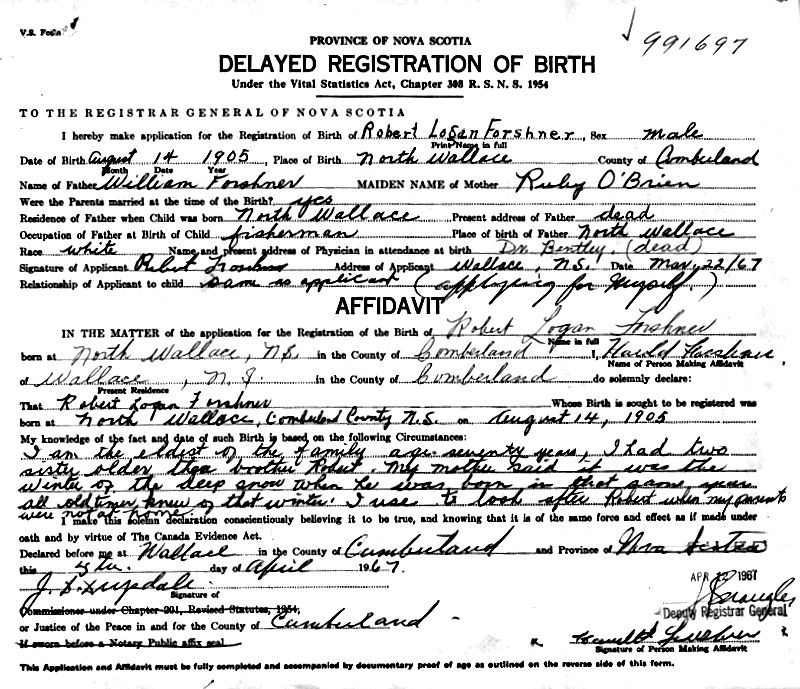 V.S. Form
991697
PROVINCE OF NOVA SCOTIA
DELAYED REGISTRATION OF BIRTH
Under the Vital Statistics Act, Chapter 308 R. S. N. S. 1954
TO THE REGISTRAR GENERAL OF NOVA SCOTIA
I hereby make application for the Registration of Birth of Robert Logan Forshner, Sex male
Print Name in full
Date of Birth August 14 1905, Place of Birth North Wallace County of Cumberland
Month Date Year
Name of Father William Forshner MAIDEN NAME of Mother Ruby O'Brien
Were the Parents married at the time of the Birth? yes
Residence of Father when Child was born North Wallace Present address of Father dead
Occupation of Father at Birth of Child fisherman Place of birth of Father North Wallace
Race white Name and present address of Physician in attendance at birth Dr. Bentley (dead)
Signature of Applicant Robert Forshner Address of Applicant Wallace, N.S. Date Mar. 22/67
Relationship of Applicant to child same as applicant (applying for myself.)
AFFIDAVIT
IN THE MATTER of the application for the Registration of the Birth of Robert Logan Forshner
Name in full
born at North Wallace, N.S. in the County of Cumberland I, Harold Forshner
Name of Person Making Affidavit
of Wallace, N.S. in the County of Cumberland do solemnly declare:
Present Residence
That Robert Logan Forshner Whose Birth is sought to be registered was
born at North Wallace, Cumberland County N.S. on August 14, 1905
My knowledge of the fact and date of such Birth is based on the following Circumstances:
I am the eldest of the family age seventy years, I had two
sister older then brother Robert. My mother said it was the
winter of the deep snow when he was born in that same year
all old timer knew of that winter. I use to look after Robert when my parents
were not at home.
I make this solemn declaration conscientiously believing it to be true, and knowing that it is of the same force and effect as if made under
oath and by virtue of The Canada Evidence Act.
Declared before me at Wallace in the County of Cumberland and Province of Nova Scotia
this day of April 1967.
APR 1967
J.
Signature of
Deputy Registrar General
Commissioner under Chapter 201, Revised Statutes, 1954,
or Justice of the Peace in and for the County of Cumberland
If sworn before a Notary Public affix seal
x Harold Forshner
Signature of Person Making Affidavit
This Application and Affidavit must be fully completed and accompanied by documentary proof of age as outlined on the reverse side of this form.